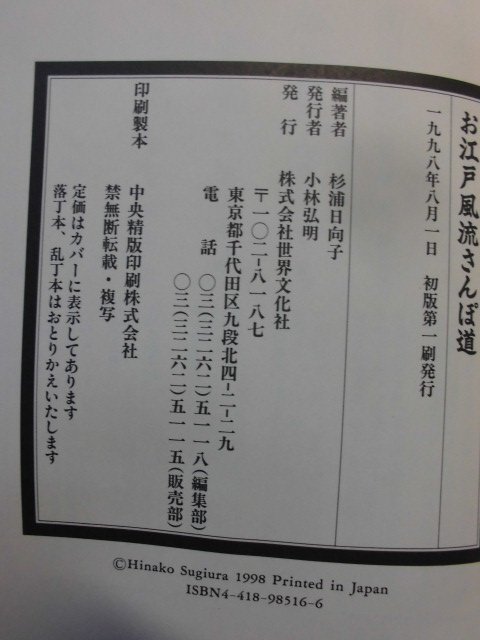 お江戸風流さんぽ道
一九九八年八月一日　初版第一刷発行
編著者　杉浦日向子
発行者　小林弘明
発　行　株式会社世界文化社
〒一〇二-八一八七
東京都千代田区九段北四-二-二九
電　話　〇三(三二六二)五一一八(編集部)
〇三(三二六二)五一一五(販売部)
印刷製本　中央精版印刷株式会社
禁無断転載・複写
定価はカバーに表示してあります
落丁本、乱丁本はおとりかえいたします
©Hinako Sugiura 1998 Printed in Japan
ISBN4-418-98516-6